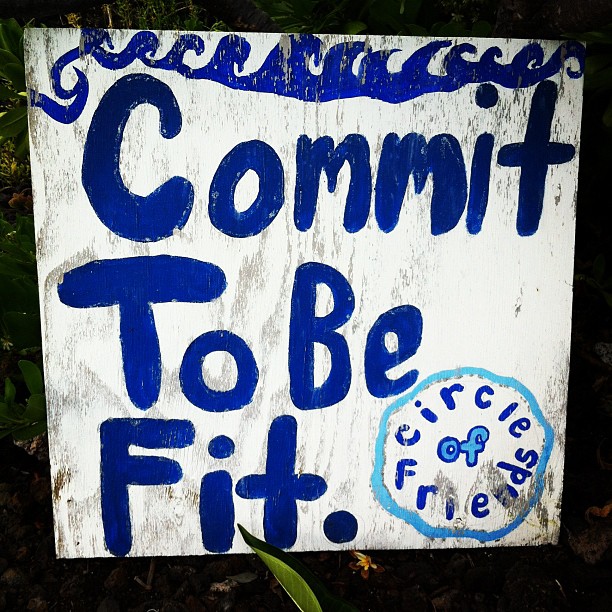 Commit
To Be
Fit.
circles
of
Friends